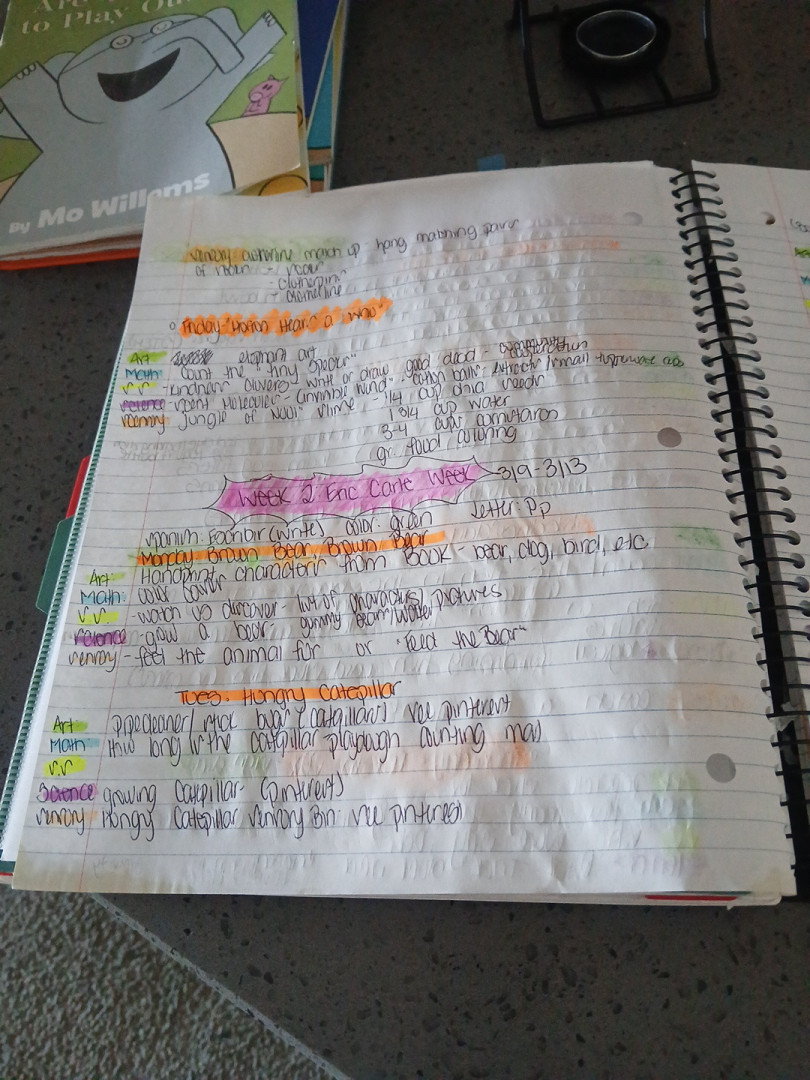 to Play Ou
By Mo Willems
sensory clothesline match up - hang matching pairs
of
- clothespins
- clothesline
Friday - Horton Hears a Who
Art elephant art
Math: count the "tiny specks"
S.S - kindness clovers - write or draw good deed -
science - scent molecules - "invisible wind" - cotton balls - extracts / small tupperware cups
sensory "Jungle of Nool" slime - 1/4 cup chia seeds
1 3/4 cup water
3-4 cups cornstarch
gr. food coloring
Week 2 Eric Carle Week 3/9-3/13
spanish: Escribir (write) color: green letter: Pp
Monday Brown Bear Brown Bear
Art: Handprint characters from Book - bear, dog, bird, etc
Math: color
S.S - watch vs discover - list of characters/ pictures
science - grow a bear - gummy bear/water
sensory - feel the animal fur or "Feed the Bear"
Tues. Hungry Catepillar
Art pipecleaner/ stick bugs (catepillars) see pinterest
Math how long is the catepillar playdough counting mas
S.S
Science growing Catepillar - (pinterest)
sensory Hungry Catepillar sensory Bin - see pinterest